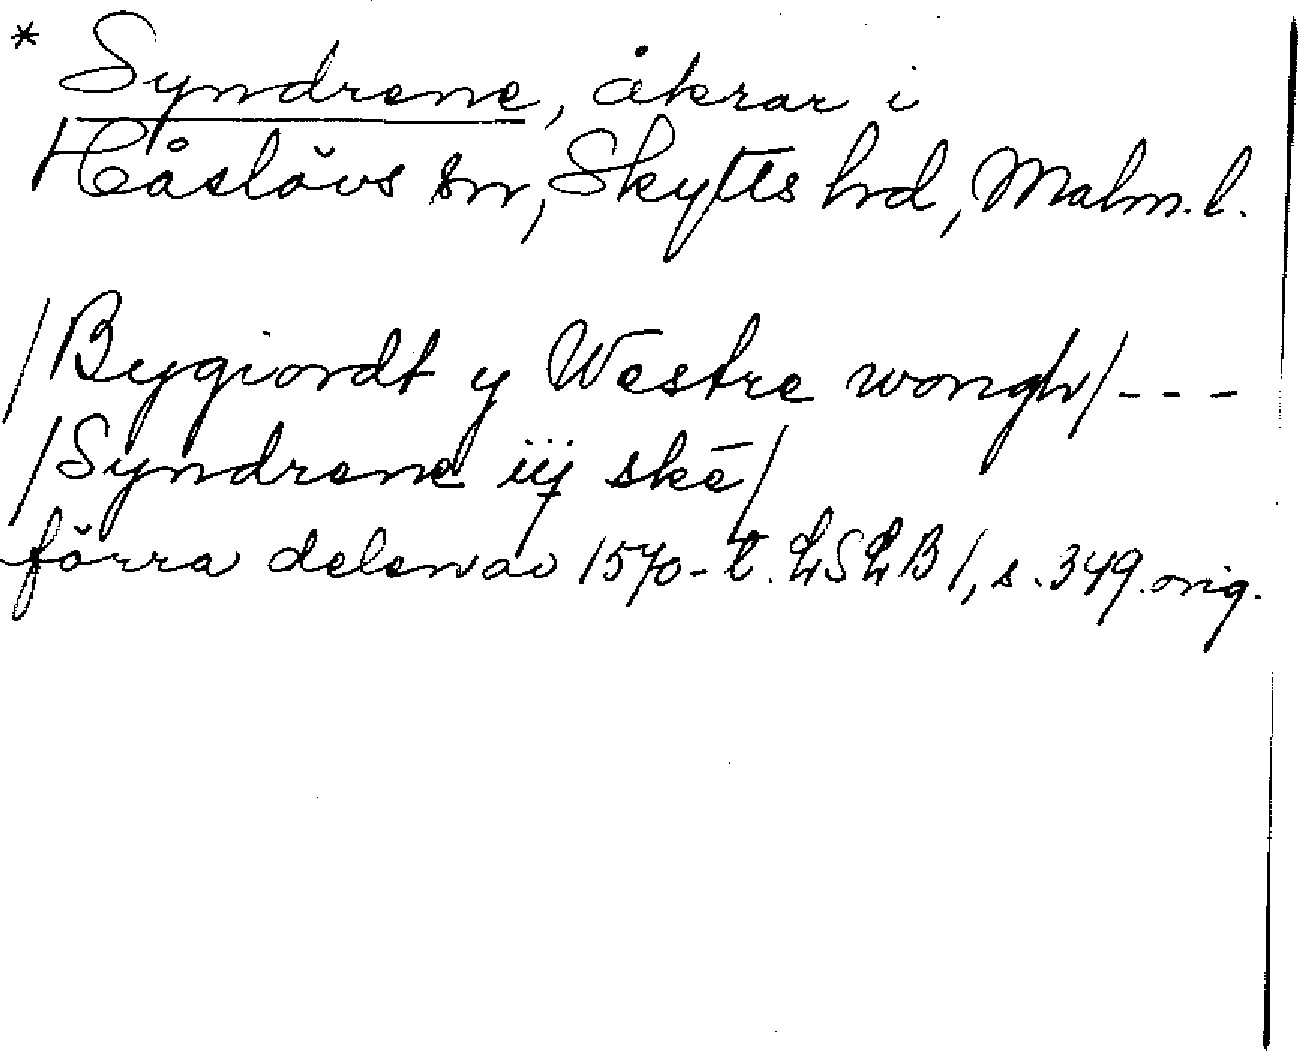 * Syndrene, åkrar i
Håslövs sn, Skytts hrd, Malm. l.
/Bygiordt y Westre wongh/ - - -
/Syndrene iij skē/
förra delen av 1570-t. LSLB 1, s. 349. orig.